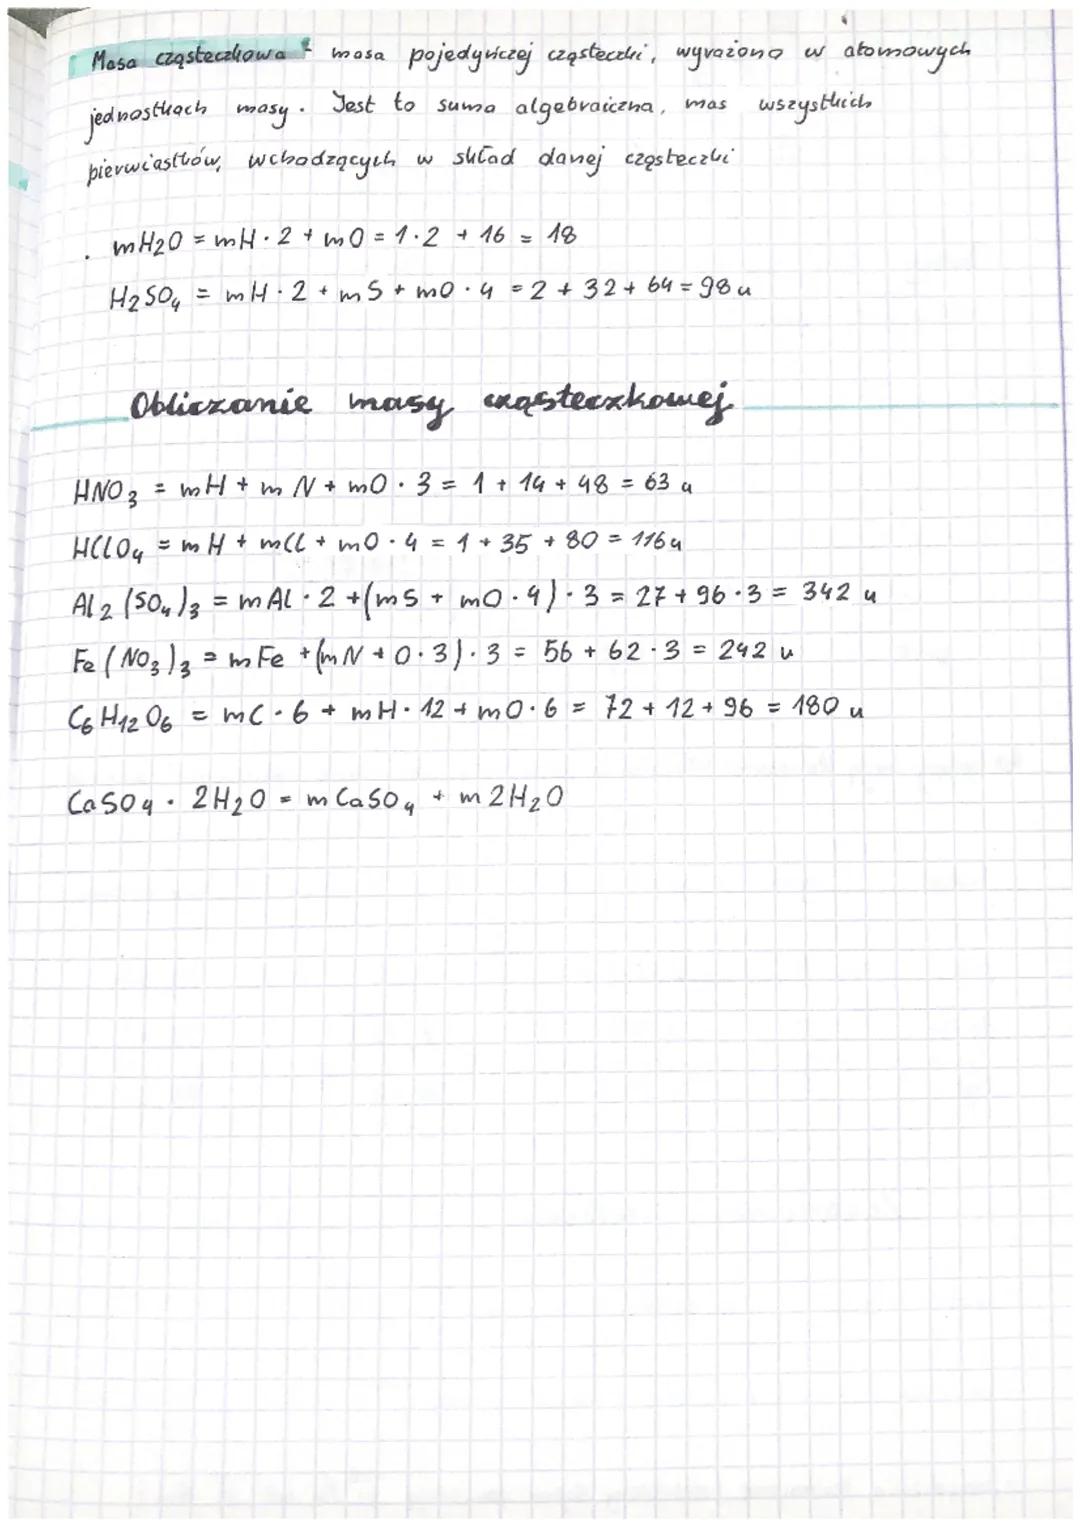 Masa cząsteczkowa - masa pojedyńczej cząsteczki, wyrażona w atomowych
jednostkach masy. Jest to suma algebraiczna, mas wszystkich
pierwiastków, wchodzących w skład danej cząsteczki
mH2O = mH · 2 + mO = 1·2 + 16 = 18
H2SO4 = mH · 2 + mS + mO · 4 = 2 + 32 + 64 = 98 u
Obliczanie masy cząsteczkowej
HNO3 = mH + mN + mO · 3 = 1 + 14 + 48 = 63 u
HClO4 = mH + mCl + mO · 4 = 1 + 35 + 80 = 116 u
Al2(SO4)3 = mAl · 2 + (mS + mO · 4) · 3 = 27 + 96 · 3 = 342 u
Fe(NO3)3 = mFe + (mN + O · 3) · 3 = 56 + 62 · 3 = 242 u
C6H12O6 = mC · 6 + mH · 12 + mO · 6 = 72 + 12 + 96 = 180 u
CaSO4 · 2H2O = mCaSO4 + m2H2O